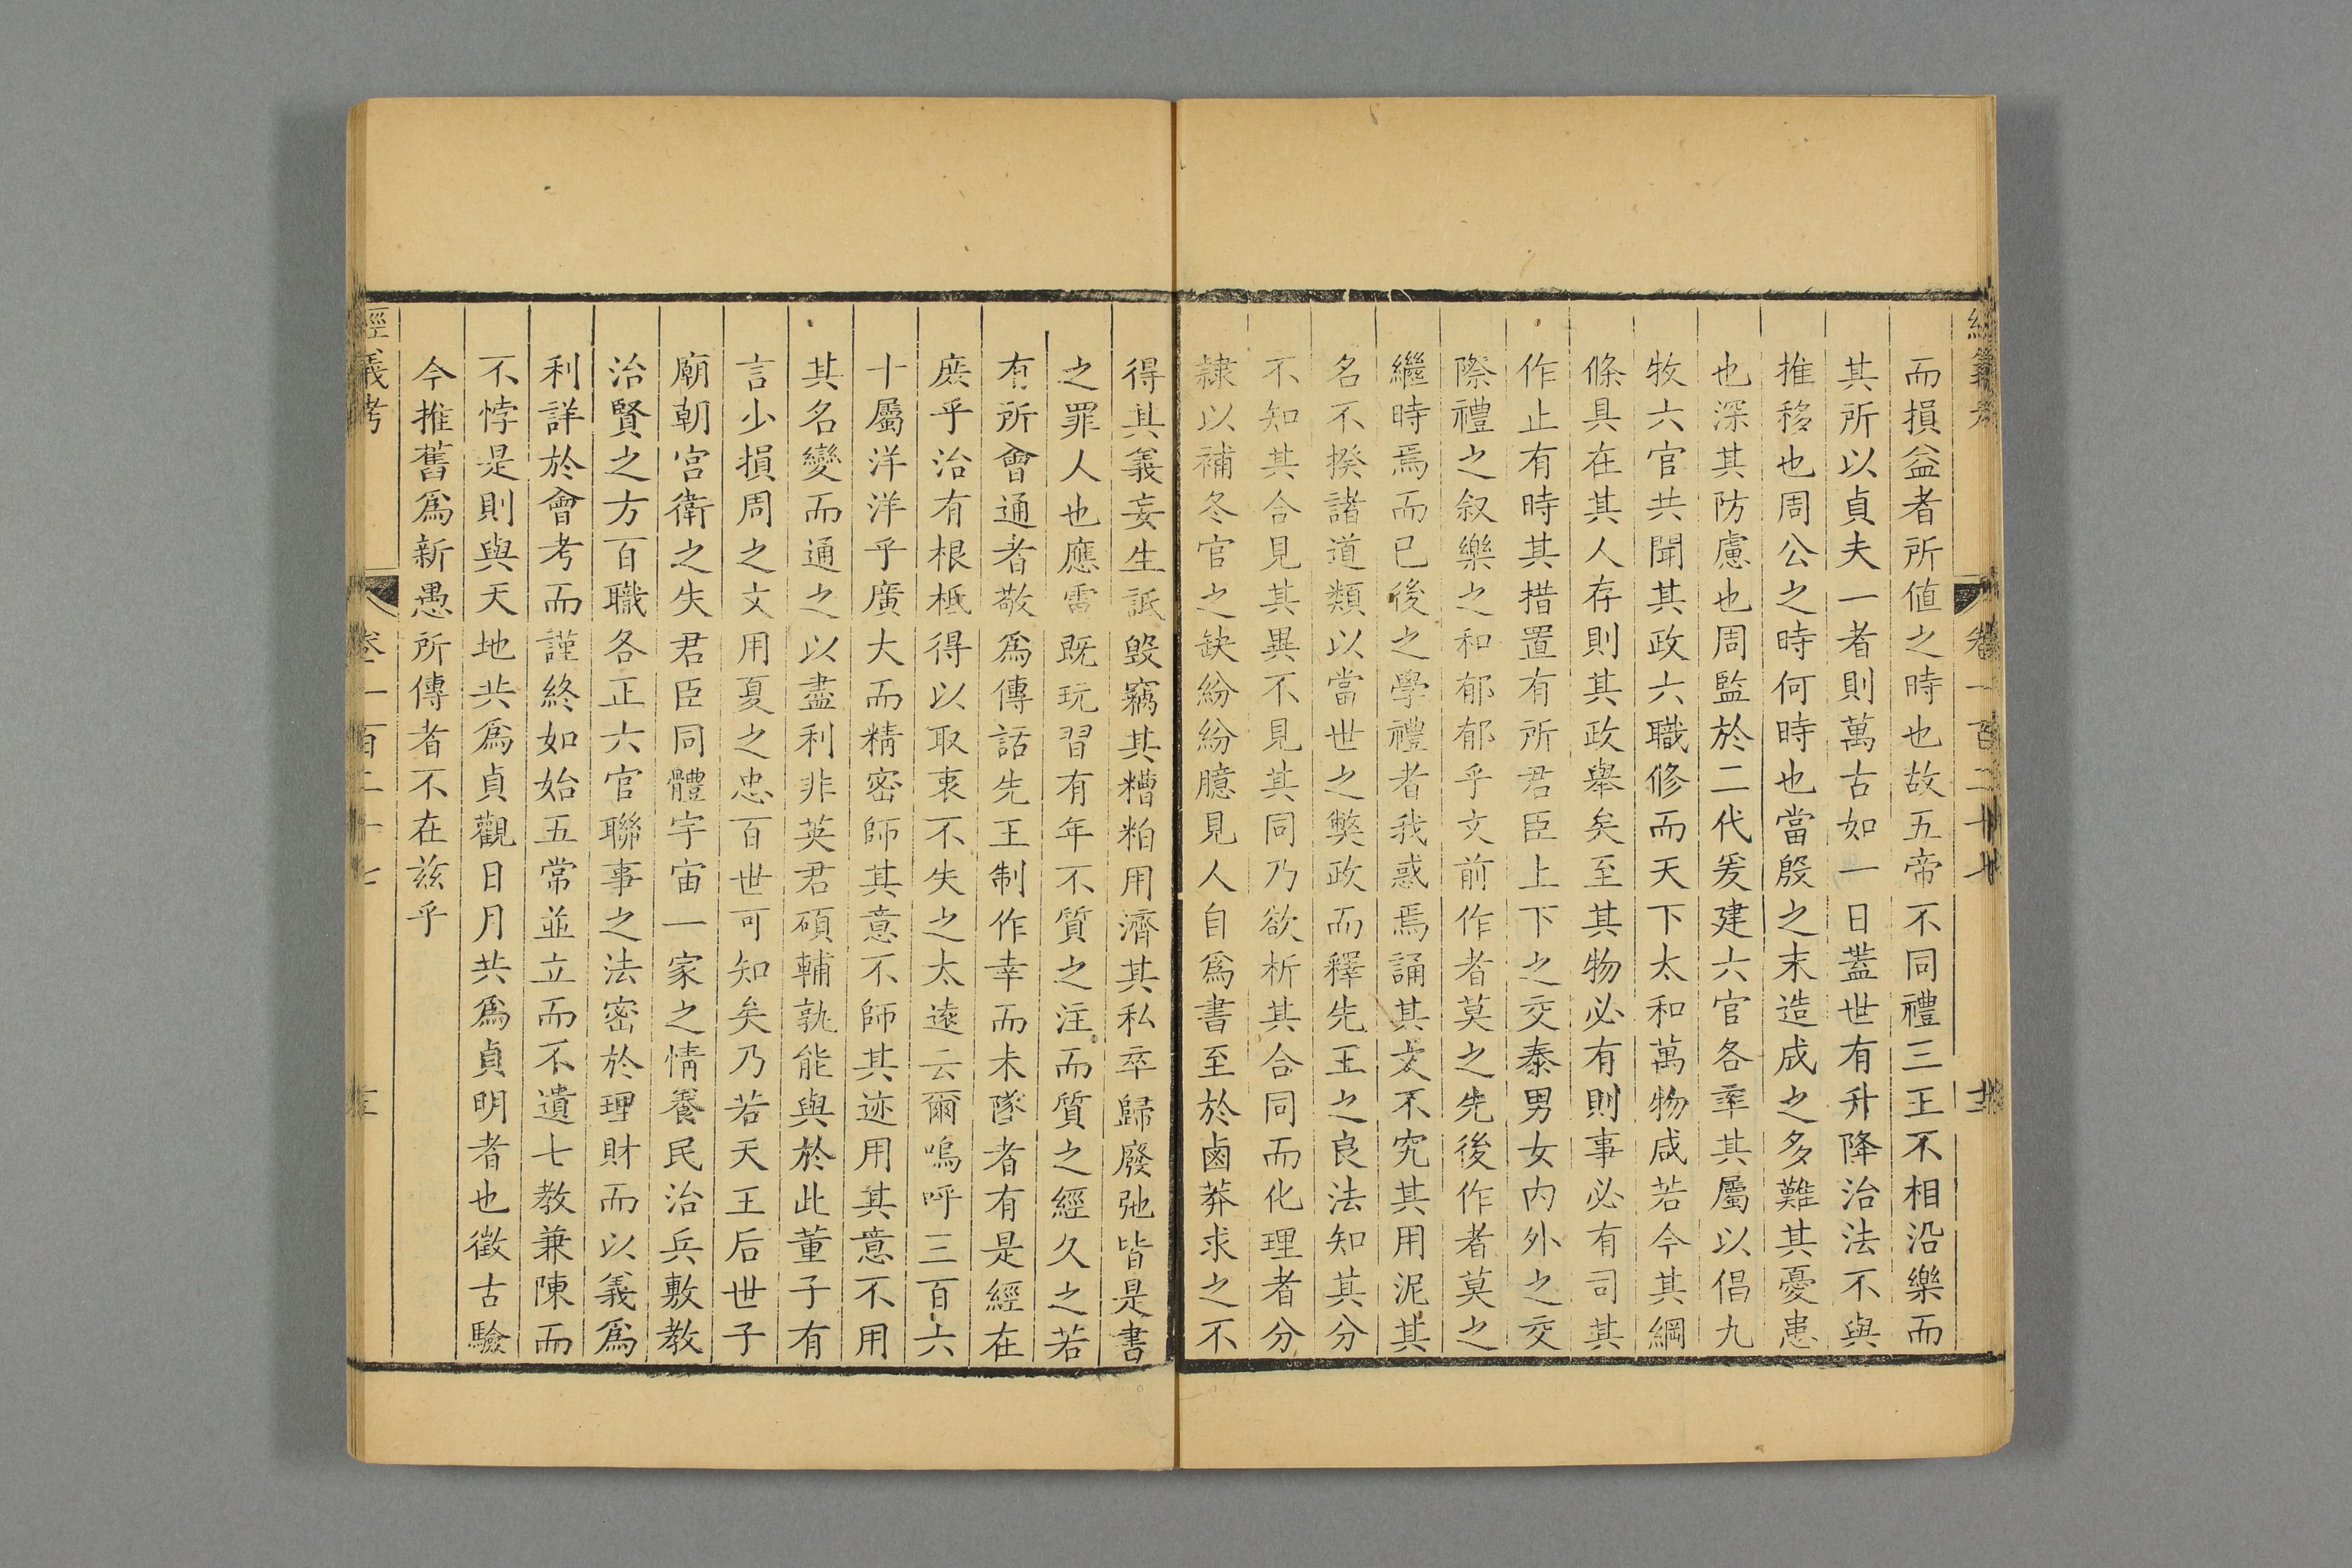 經義考 卷一百二十七
而損益者所値之時也故五帝不同禮三王不相沿樂而
其所以貞夫一者則萬古如一日蓋世有升降治法不與
推移也周公之時何時也當殷之末造成之多難其憂患
也深其防慮也周監於二代爰建六官各率其屬以倡九
牧六官共聞其政六職修而天下太和萬物咸若今其綱
條具在其人存則其政舉矣至其物必有則事必有司其
作止有時其措置有所君臣上下之交泰男女內外之交
際禮之叙樂之和郁郁乎文前作者莫之先後作者莫之
繼時焉而已後之學禮者我惑焉誦其文不究其用泥其
名不揆諸道類以當世之弊政而釋先王之良法知其分
不知其合見其異不見其同乃欲析其合同而化理者分
隷以補冬官之缺紛紛臆見人自爲書至於鹵莽求之不
得其義妄生詆毀竊其糟粕用濟其私卒歸廢弛皆是書
之罪人也應雷既玩習有年不質之注而質之經久之若
有所會通者敬爲傳詁先王制作幸而未墜者有是經在
庶乎治有根柢得以取衷不失之太遠云爾嗚呼三百六
十屬洋洋乎廣大而精密師其意不師其迹用其意不用
其名變而通之以盡利非英君碩輔孰能與於此董子有
言少損周之文用夏之忠百世可知矣乃若天王后世子
廟朝宮衛之失君臣同體宇宙一家之情養民治兵敷教
治賢之方百職各正六官聯事之法密於理財而以義爲
利詳於會考而謹終如始五常並立而不遺七教兼陳而
不悖是則與天地共爲貞觀日月共爲貞明者也徵古驗
今推舊爲新愚所傳者不在茲乎
經義考 卷一百二十七